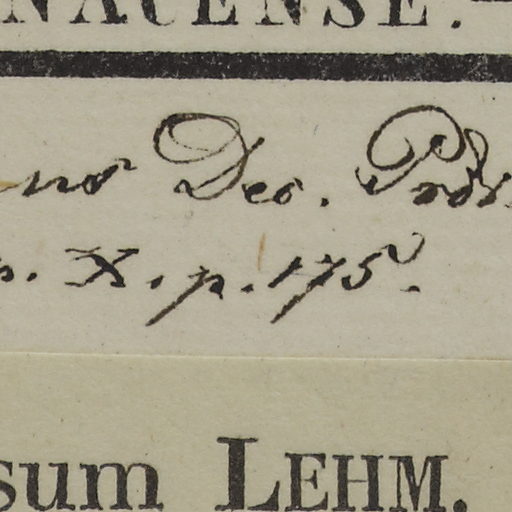 NACENSE.
Dec. Prodr.
X. p. 175.
sum LEHM.